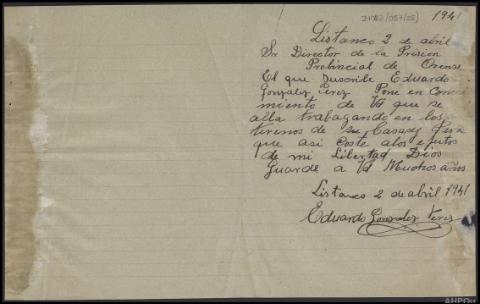 21052/057/25) 1941
Listanco 2 de abril
Sr Director de la Prision
Probincial de Orense
El que suscribe Eduardo
Gonzalez Perez Pone en Conoci
miento de Vd que se
alla trabagando en los
tirenos de su Casa y Para
que asi coste a los efetos
de mi Libertad Dios
Guarde a Vd Muchos años
Listanco 2 de abril 1941
Eduardo Gonzalez Perez
AHPOu